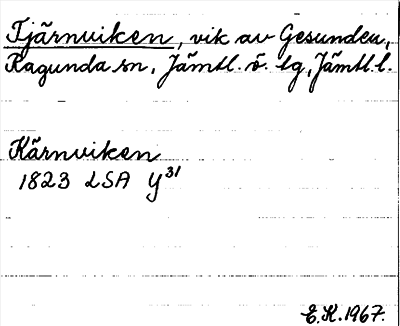 Tjärnviken, vik av Gesunden,
Ragunda sn, Jämtl. ö. tg, Jämtl. l.
Kärnviken
1823 LSA Y31
E.K. 1967.